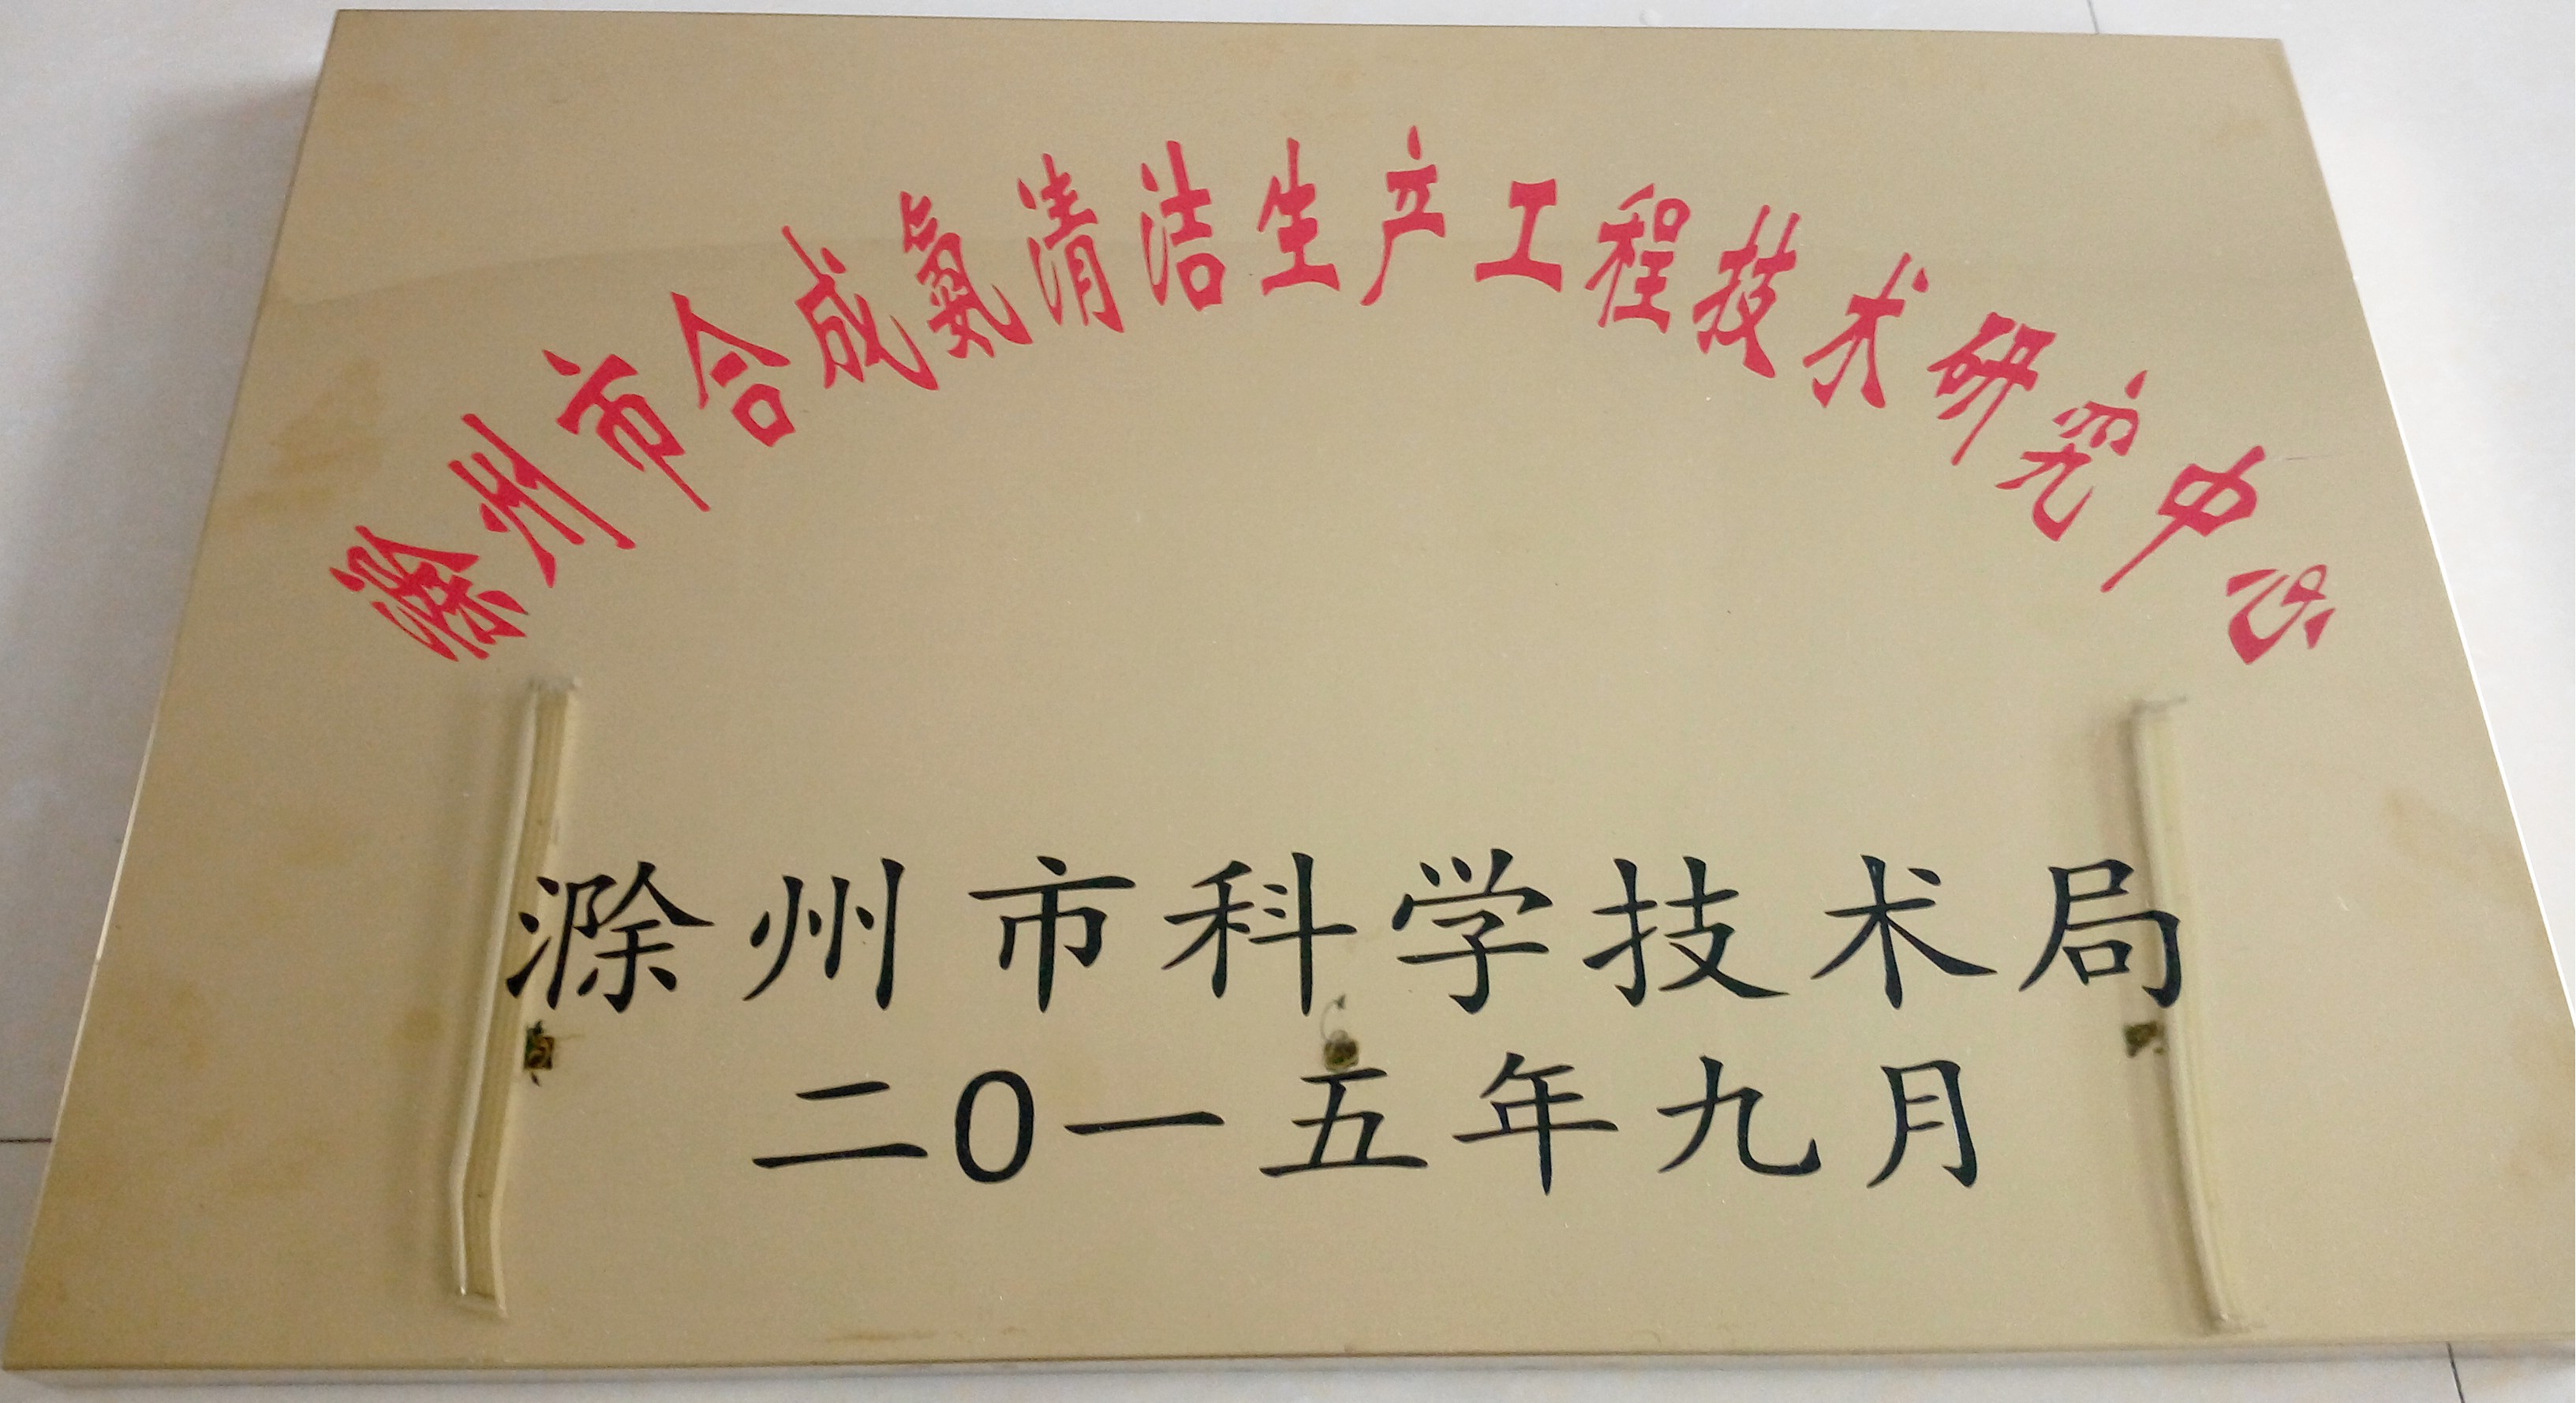 滁州市合成氨清洁生产工程技术研究中心
滁州市科学技术局
二0一五年九月